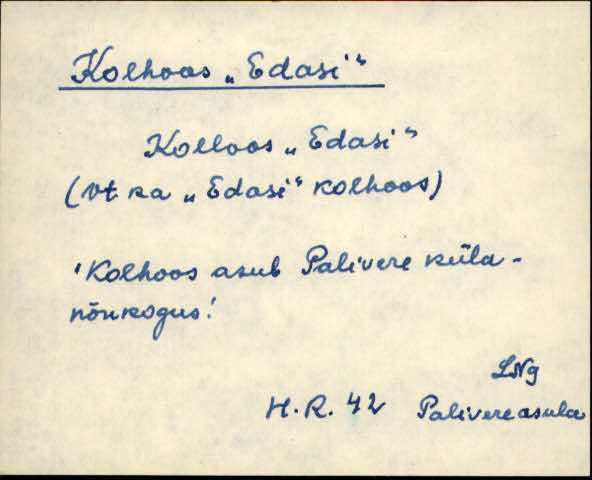 Kolhoos „Edasi“
Kolloos „Edasi“
(vt. ka „Edasi“ kolhoos)
'Kolhoos asub Palivere küla-
nõukogus!
LNg
H.R. 42 Palivere asula